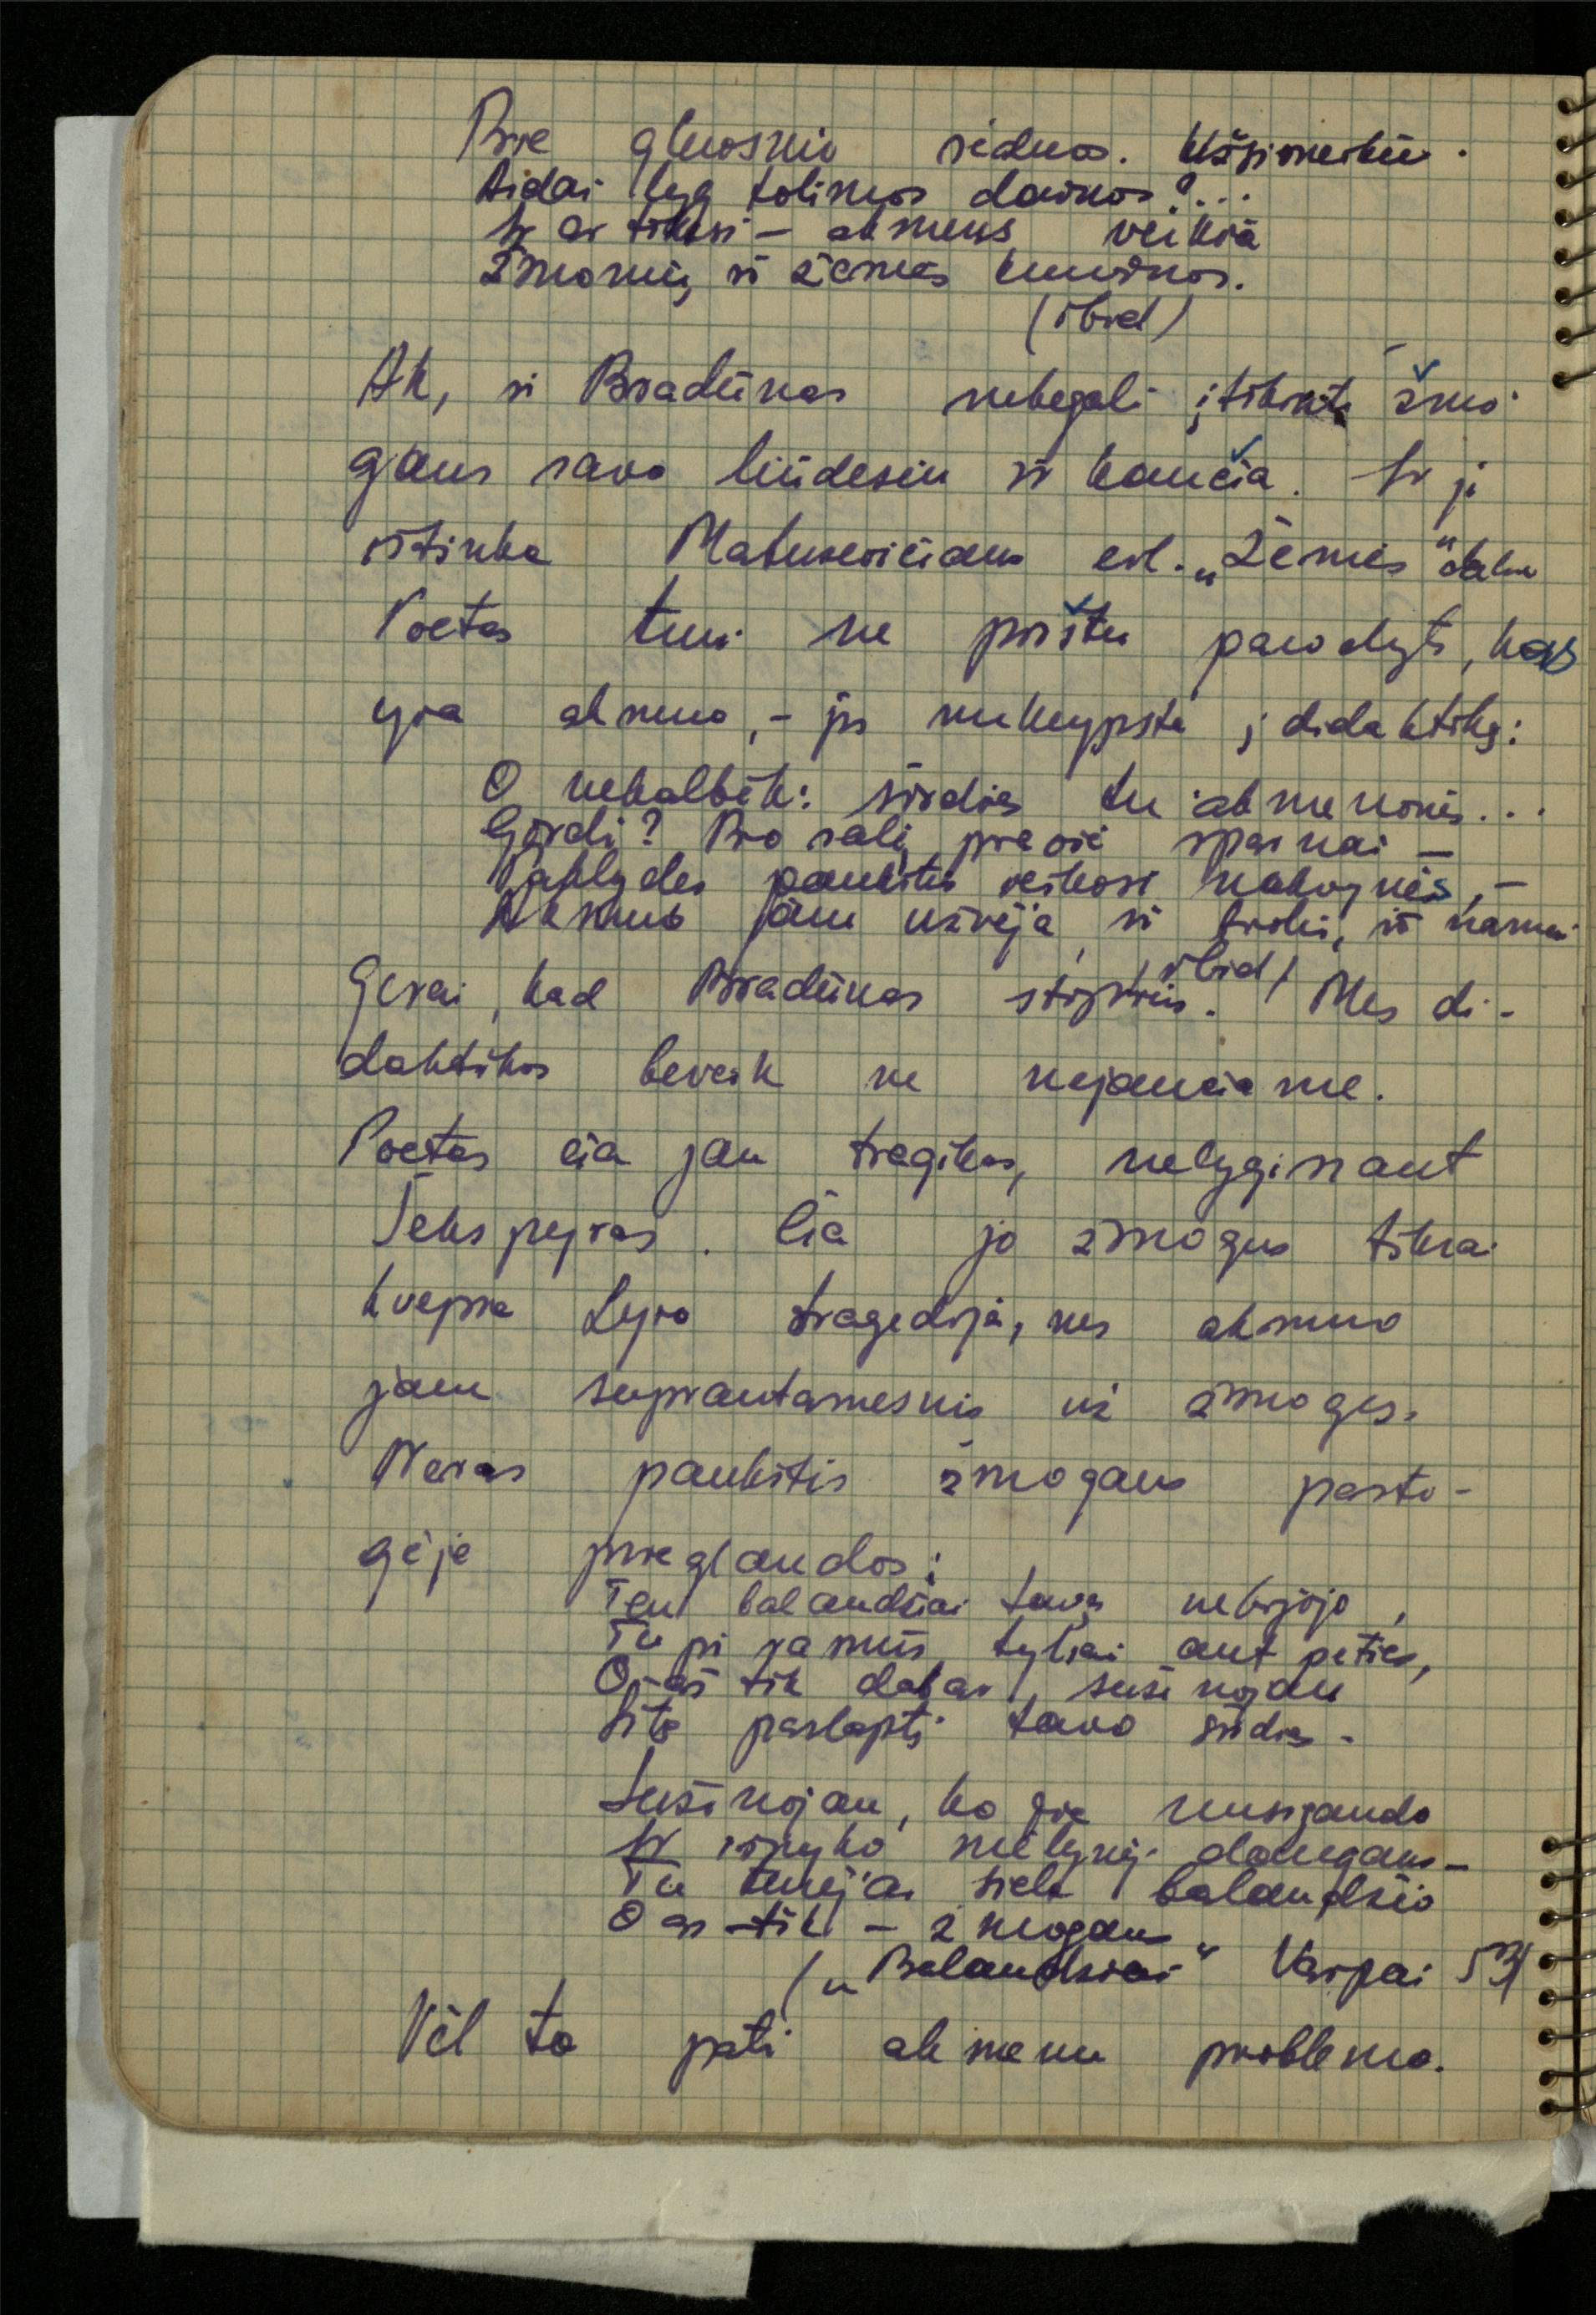 Prie gluosnio sėdaus. Užsimerkiu.
Aidai lyg tolimos dainos?...
Ir ar tikėsi – akmens veikia
Žmonių iš žemės kruvinos.
(ibid)
Ak, ir Bradūnas nebegali įtikinti žmo-
gaus savo liūdesiu ir kančia. Ir jį
ištinka Matusevičiaus eil. „Žemės"
Poetas turi ne pirštu parodyti, kas
yra akmuo, – jis nukrypsta į didaktiką:
O nekalbėk: širdies tu akmeninės...
Girdi? Pro šalį praošė sparnai –
Paklydęs paukštis ieškosi nakvynės, –
Akmuo jam užvėja, ir broliu, ir namai
(ibid)
Gerai, kad Bradūnas stiprus. Mes di-
daktikos beveik ne nejaučiame.
Poetas čia jau tragikas, nelyginant
Šekspyras. Čia jo žmogus tikrai
kvepia Lyro tragedija, nes akmuo
jam suprantamesnis už žmogų.
Neras paukštis žmogaus pasto-
gėje prieglaudos:
Ten balandžiai tavęs nebijojo,
Tupi ramūs tyliai ant peties,
O aš tik dabar sužinojau
Šitą paslaptį tavo širdies.
Sužinojau, ko jie nusigando
Ir išnyko mėlynėj dangaus –
Tu turėjai sielą balandžio
O aš tik – žmogaus
(„Balandžiai" Varpai 53)
Vėl ta pati akmenų problema.